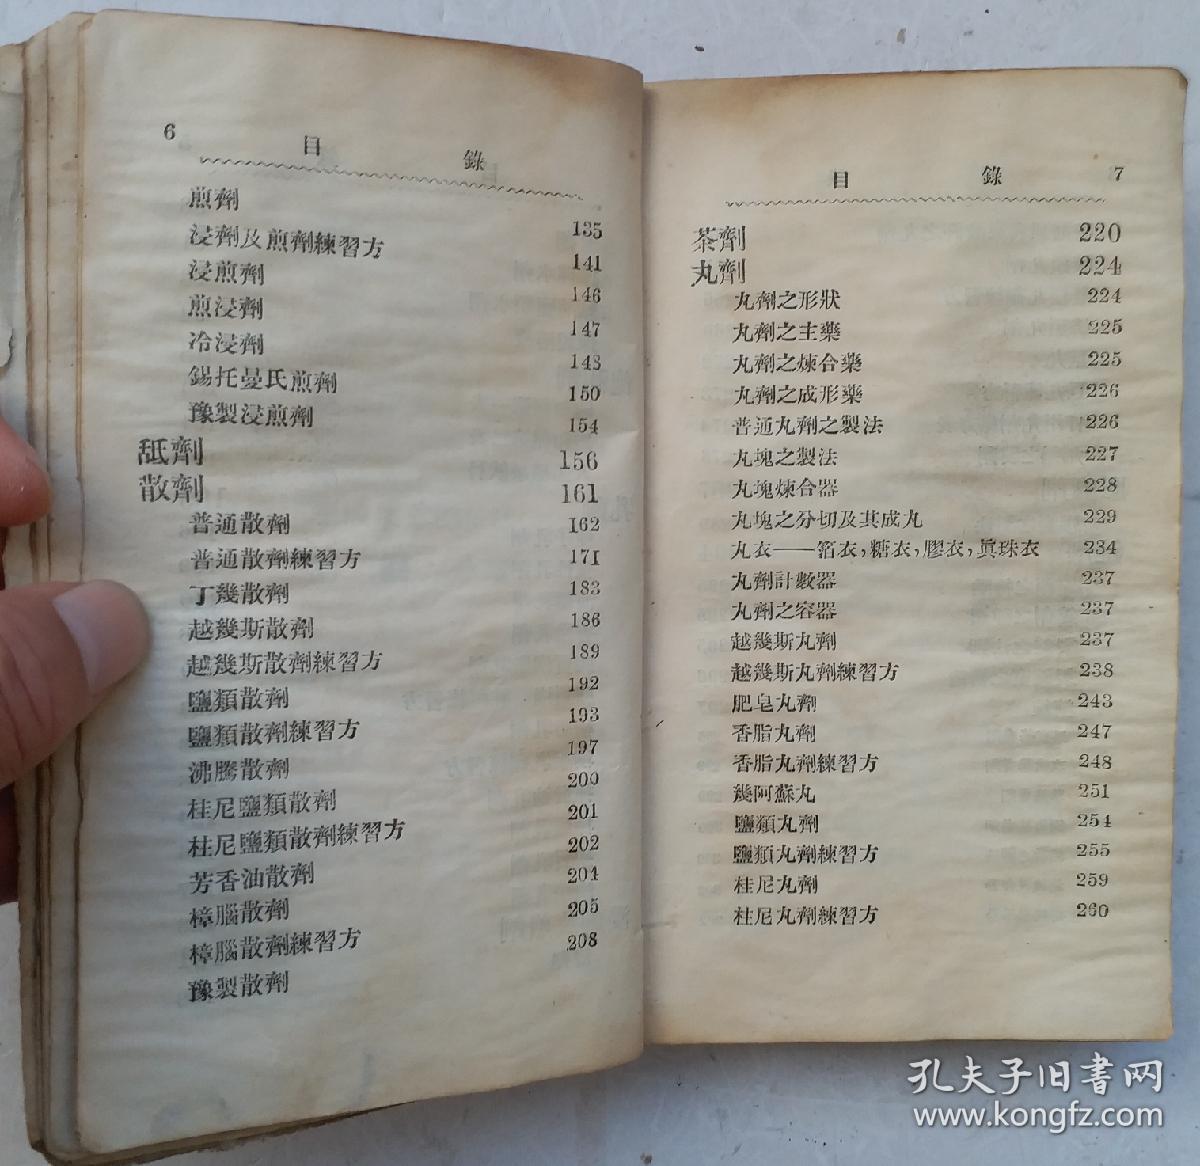 6 目 錄
煎劑 135
浸劑及煎劑練習方 141
浸煎劑 146
煎浸劑 147
冷浸劑 148
錫托曼氏煎劑 150
豫製浸煎劑 154
舐劑 156
散劑 161
普通散劑 162
普通散劑練習方 171
丁幾散劑 183
越幾斯散劑 186
越幾斯散劑練習方 189
鹽類散劑 192
鹽類散劑練習方 193
沸騰散劑 197
桂尼鹽類散劑 200
桂尼鹽類散劑練習方 201
芳香油散劑 202
樟腦散劑 204
樟腦散劑練習方 205
豫製散劑 208
目 錄 7
茶劑 220
丸劑 224
丸劑之形狀 224
丸劑之主藥 225
丸劑之煉合藥 225
丸劑之成形藥 226
普通丸劑之製法 226
丸塊之製法 227
丸塊煉合器 228
丸塊之分切及其成丸 229
丸衣——箔衣,糖衣,膠衣,眞珠衣 234
丸劑計數器 237
丸劑之容器 237
越幾斯丸劑 237
越幾斯丸劑練習方 238
肥皂丸劑 243
香脂丸劑 247
香脂丸劑練習方 248
幾阿蘇丸 251
鹽類丸劑 254
鹽類丸劑練習方 255
桂尼丸劑 259
桂尼丸劑練習方 260
孔夫子旧书网
www.kongfz.com